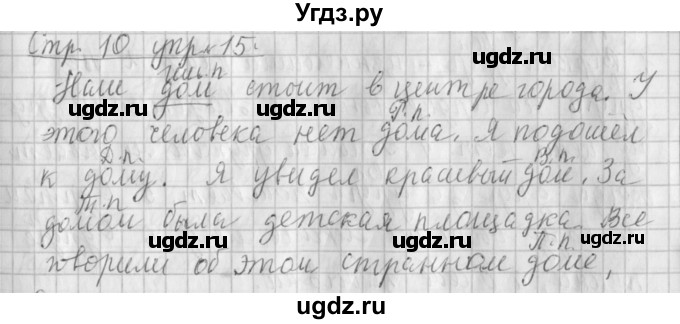 Угдз.ру
Стр. 10 упр. 15.
Им.п
Наш дом стоит в центре города. У
Р.п.
этого человека нет дома. Я подошёл
Д.п. В.п.
к дому. Я увидел красивый дом. За
Т.п
домом была детская площадка. Все
П.п.
говорили об этом странном доме,
ugdz.ru ugdz.ru
ugdz.ru ugdz.ru ugdz.ru
ugdz.ru ugdz.ru
ugdz.ru ugdz.ru ugdz.ru
ugdz.ru ugdz.ru